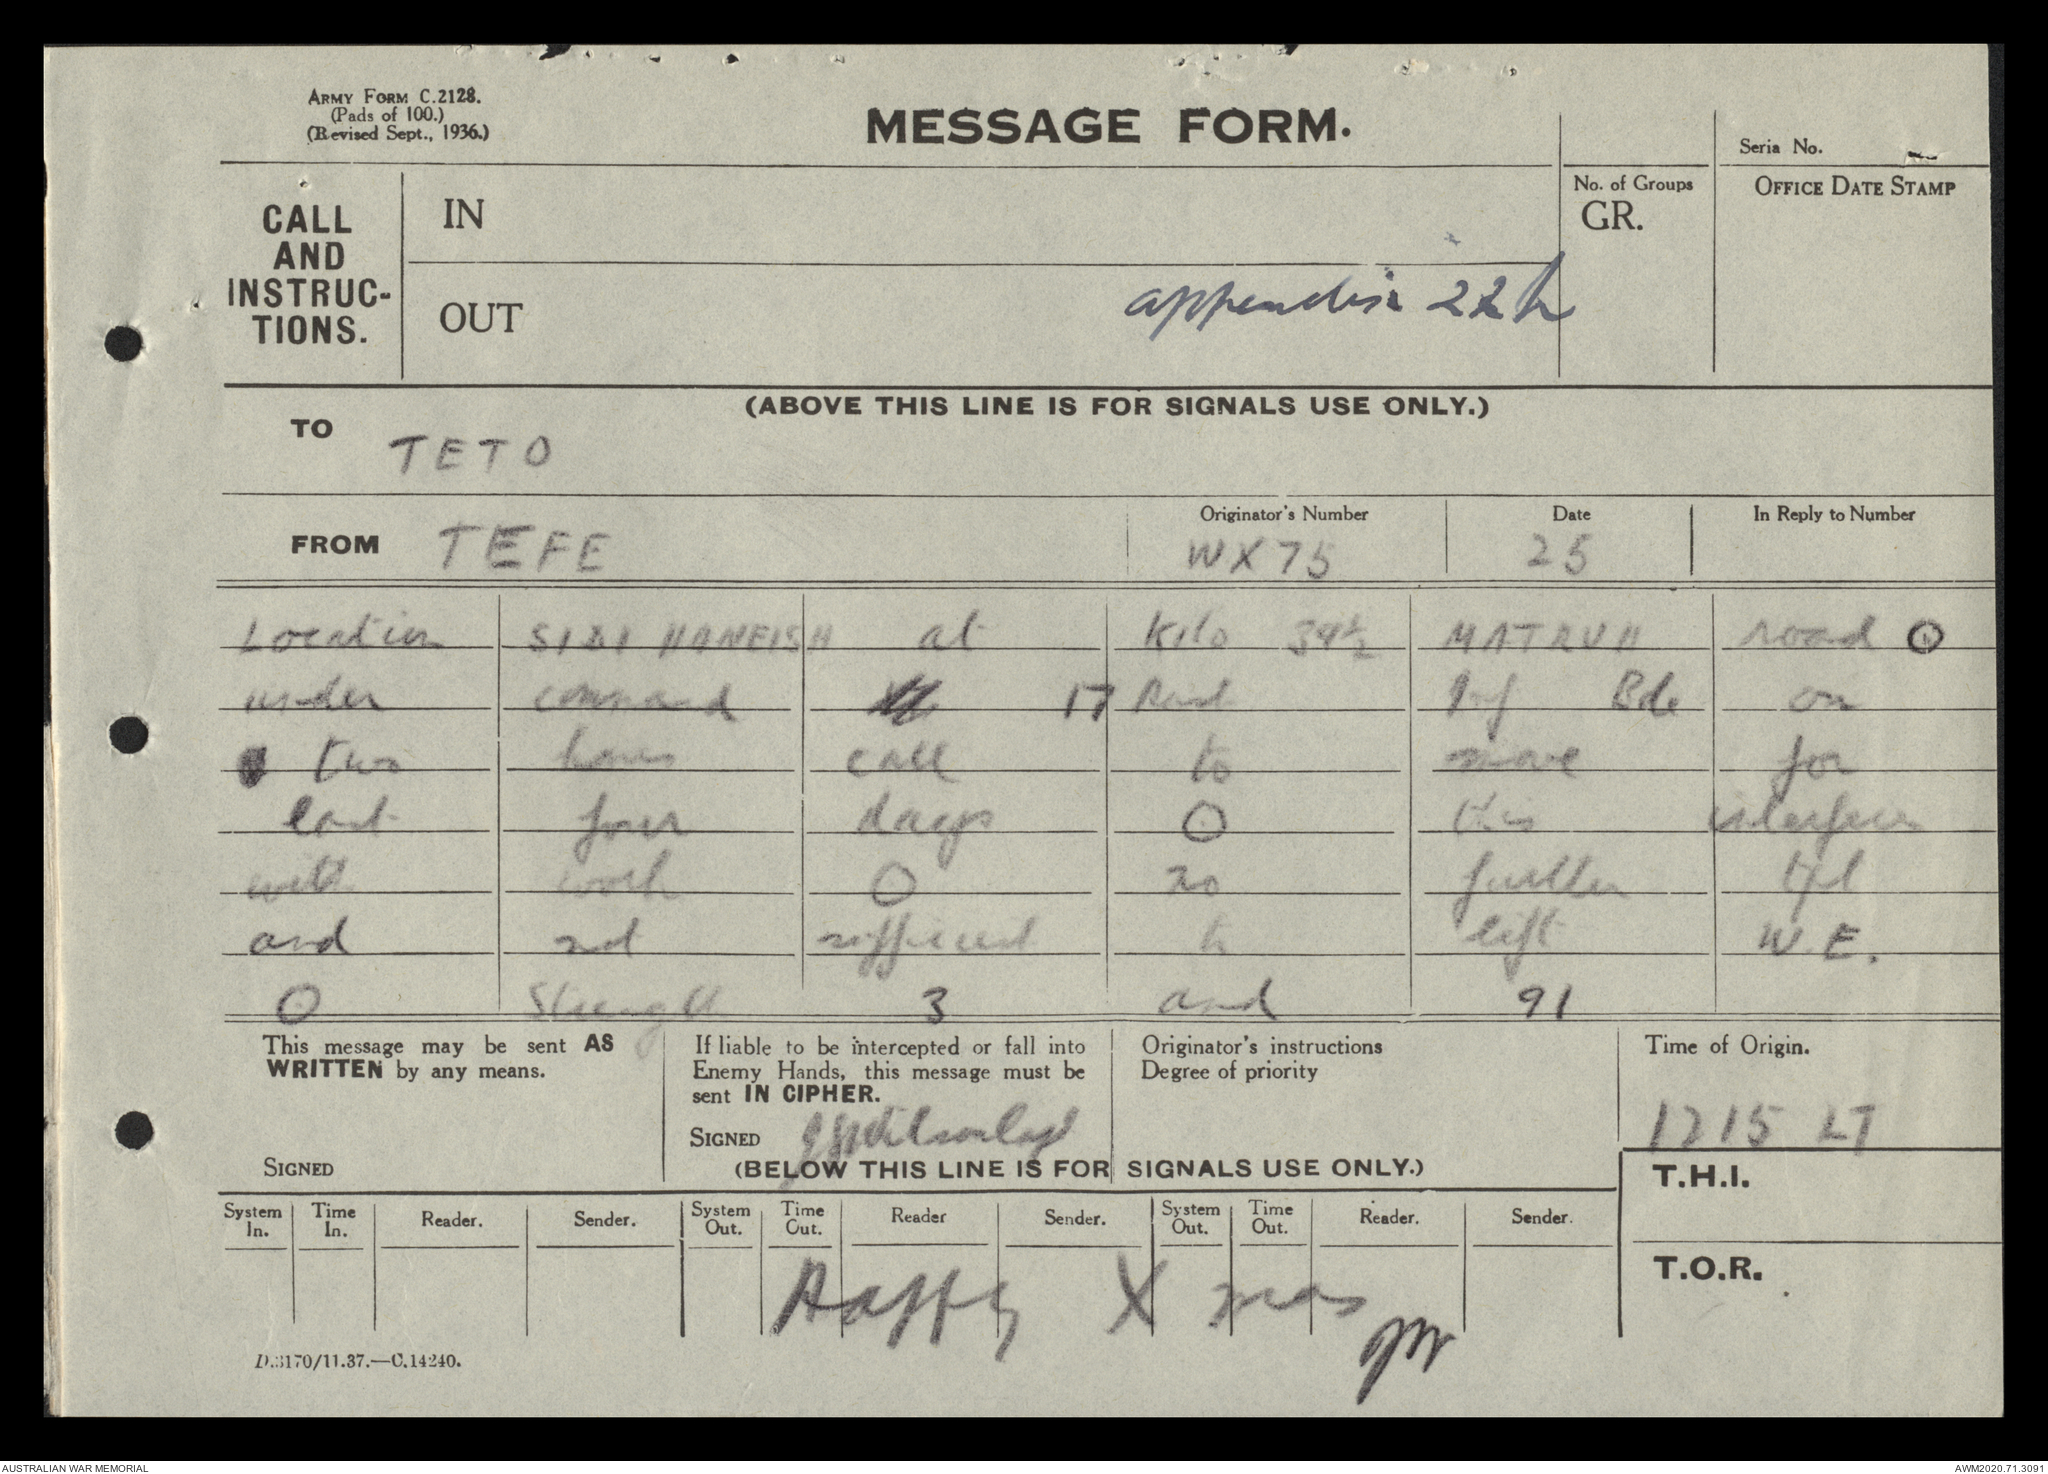 ARMY FORM C.2128.
(Pads of 100.)
(Revised Sept., 1936.)
MESSAGE FORM.
Seria No.
CALL
AND
INSTRUC-
TIONS.
IN
OUT
No. of Groups
GR.
OFFICE DATE STAMP
appendix 22h
(ABOVE THIS LINE IS FOR SIGNALS USE ONLY.)
TO TETO
FROM TEFE
Originator's Number
WX 75
Date
25
In Reply to Number
Location SIDI HANEISH at Kilo 39½ MATRUH road O
under command 17 Ind Inf Bde on
two hours call to move for
last four days O this interferes
with work O no further tpt
and not sufficient to lift W.E.
O Strength 3 and 91
This message may be sent AS
WRITTEN by any means.
SIGNED
If liable to be intercepted or fall into
Enemy Hands, this message must be
sent IN CIPHER.
SIGNED
Originator's instructions
Degree of priority
Time of Origin.
1215 LT
(BELOW THIS LINE IS FOR SIGNALS USE ONLY.)
T.H.I.
T.O.R.
System In. Time In. Reader. Sender. System Out. Time Out. Reader Sender. System Out. Time Out. Reader. Sender.
Happy Xmas
D.3170/11.37.—C.14240.
AUSTRALIAN WAR MEMORIAL
AWM2020.71.3091